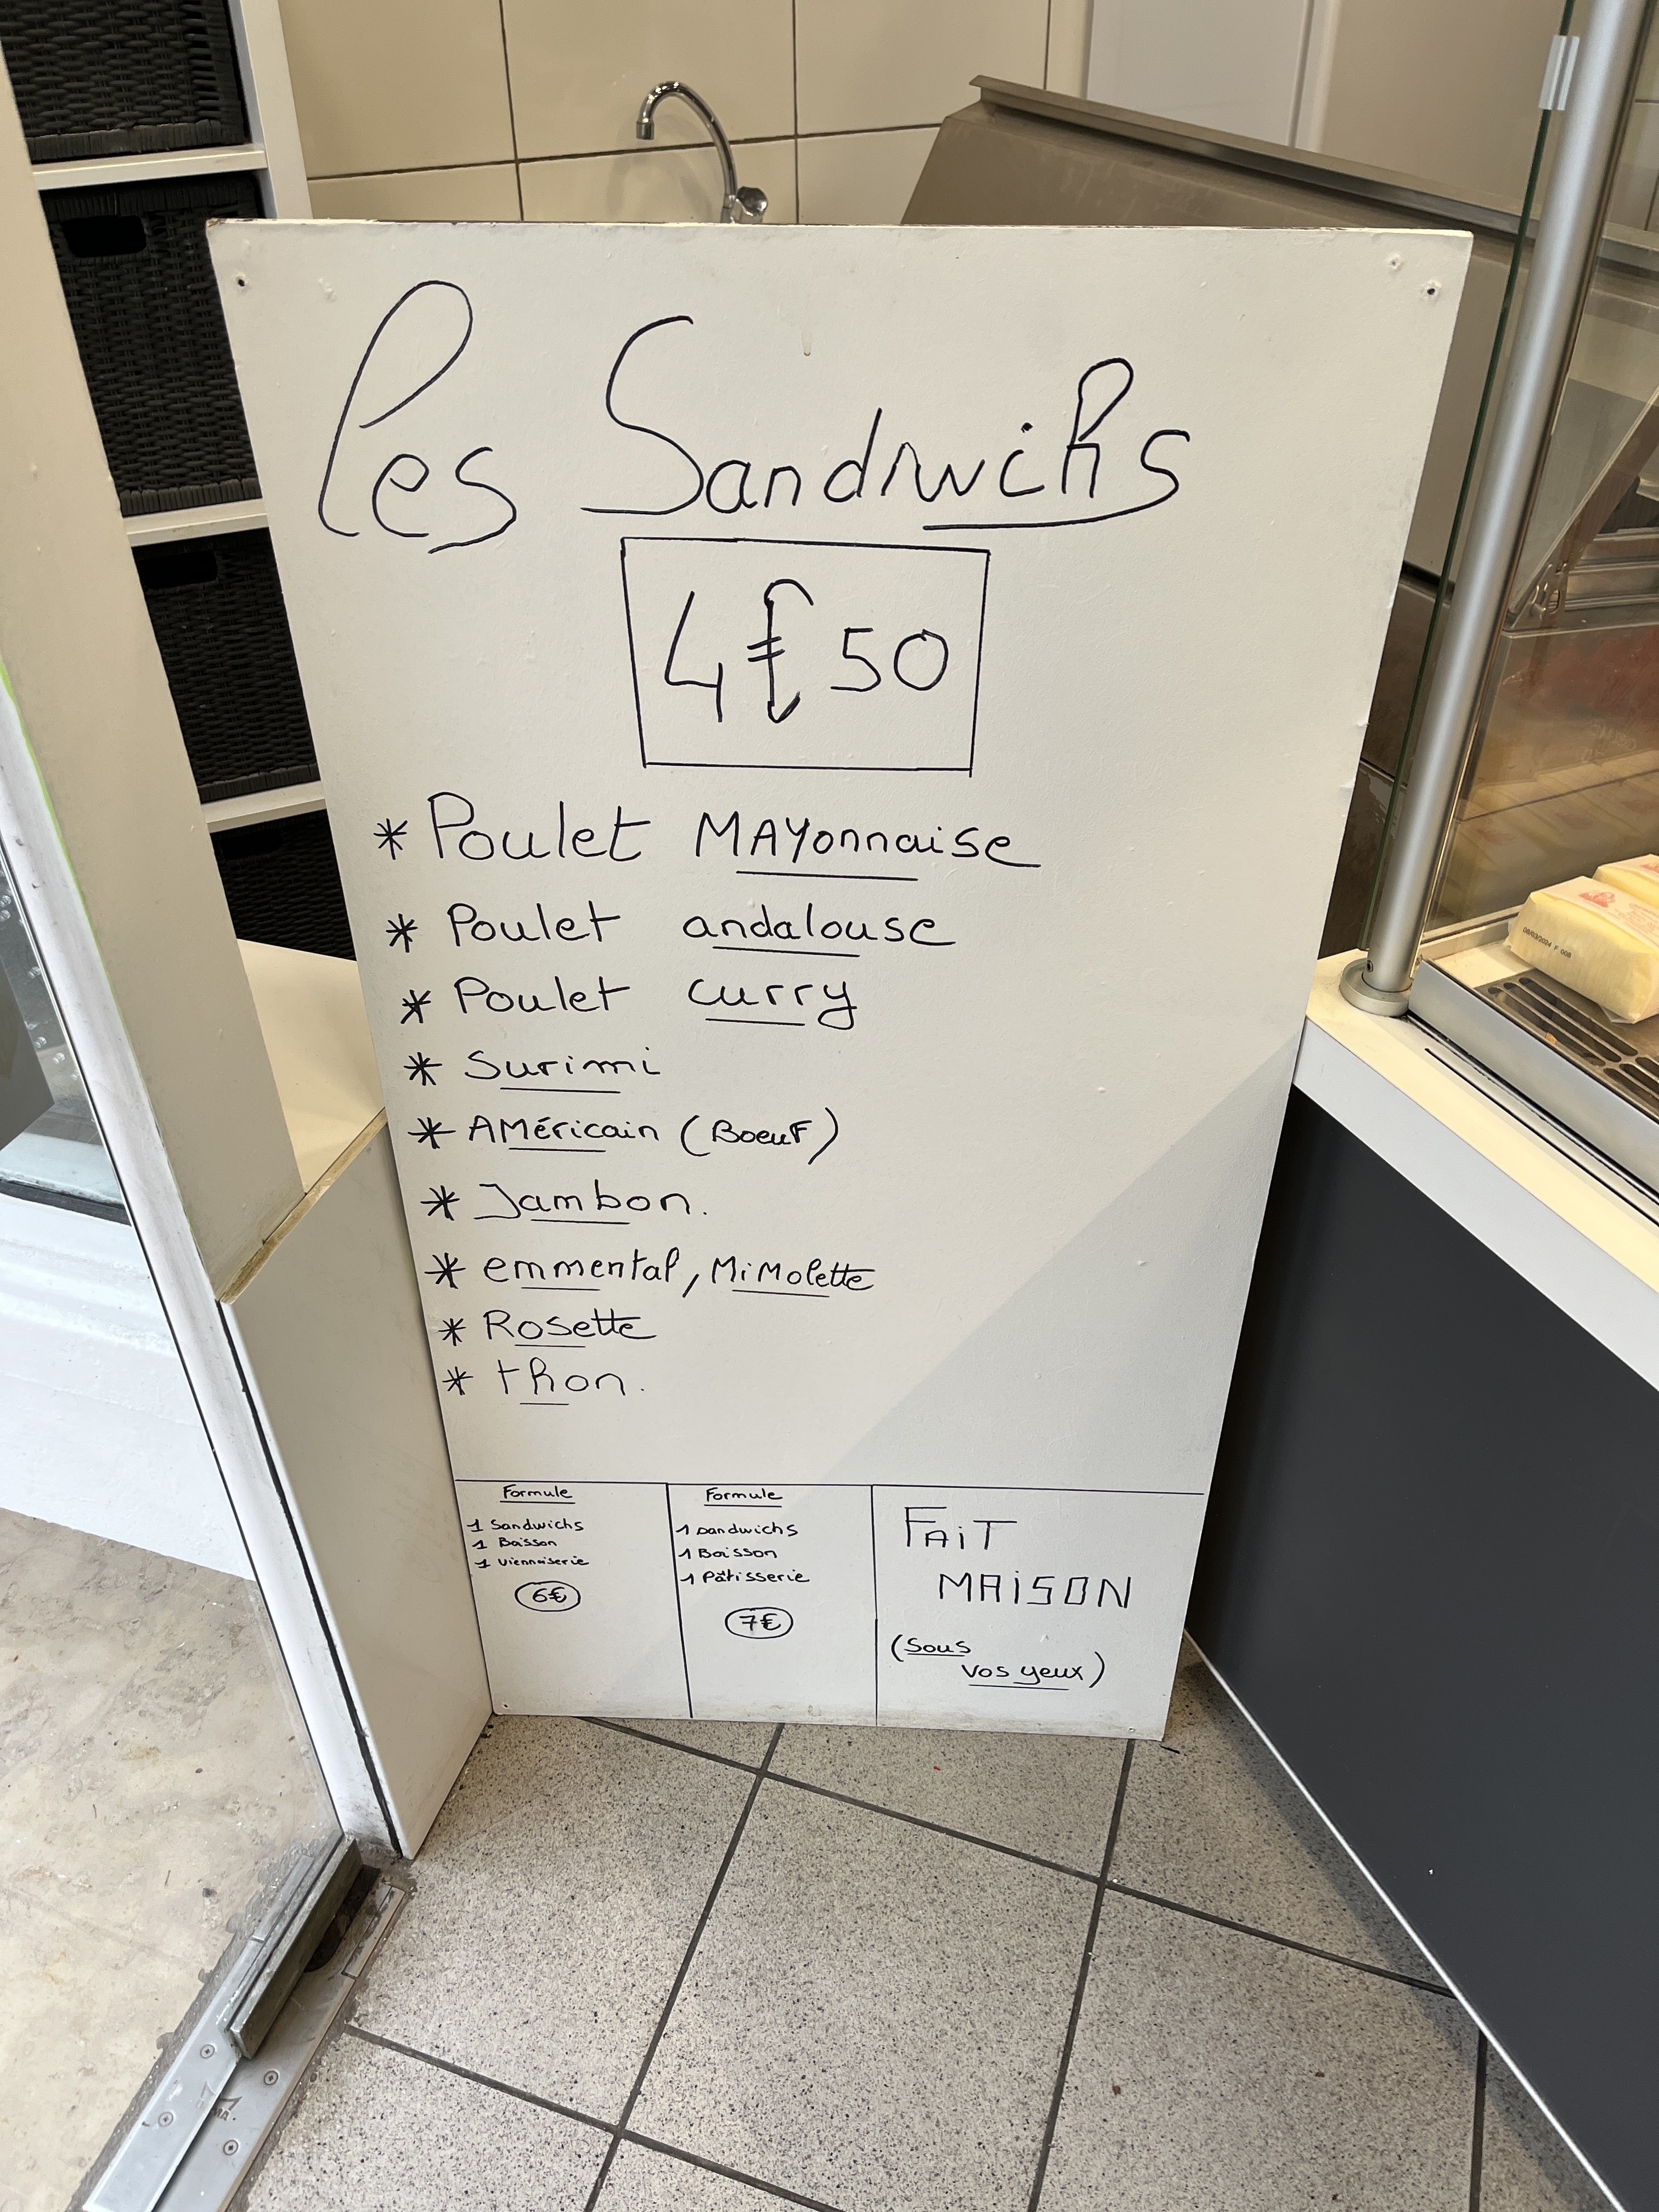 Les Sandwichs
4€50
* Poulet MAYonnaise
* Poulet andalouse
* Poulet curry
* Surimi
* AMéricain (Boeuf)
* Jambon.
* emmental, MiMolette
* Rosette
* thon.
Formule
1 Sandwichs
1 Boisson
1 Viennoiserie
6€
Formule
1 sandwichs
1 Boisson
1 Pâtisserie
7€
FAiT
MAiSON
(Sous
vos yeux)
08/03/2024 F 008